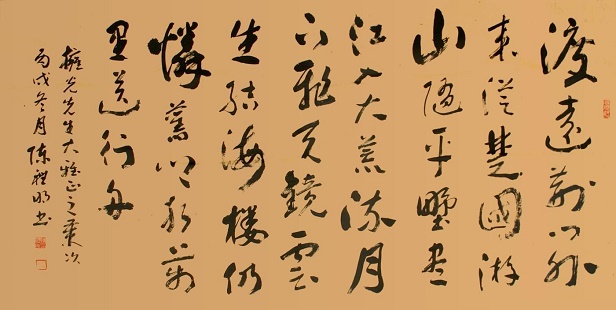 渡遠荊門外
来從楚國游
山隨平野盡
江入大荒流月
下飛天鏡雲
生結海樓仍
憐舊鄉水萬
里送行舟
光先生大雅正之
丙戌冬月陳禮明书